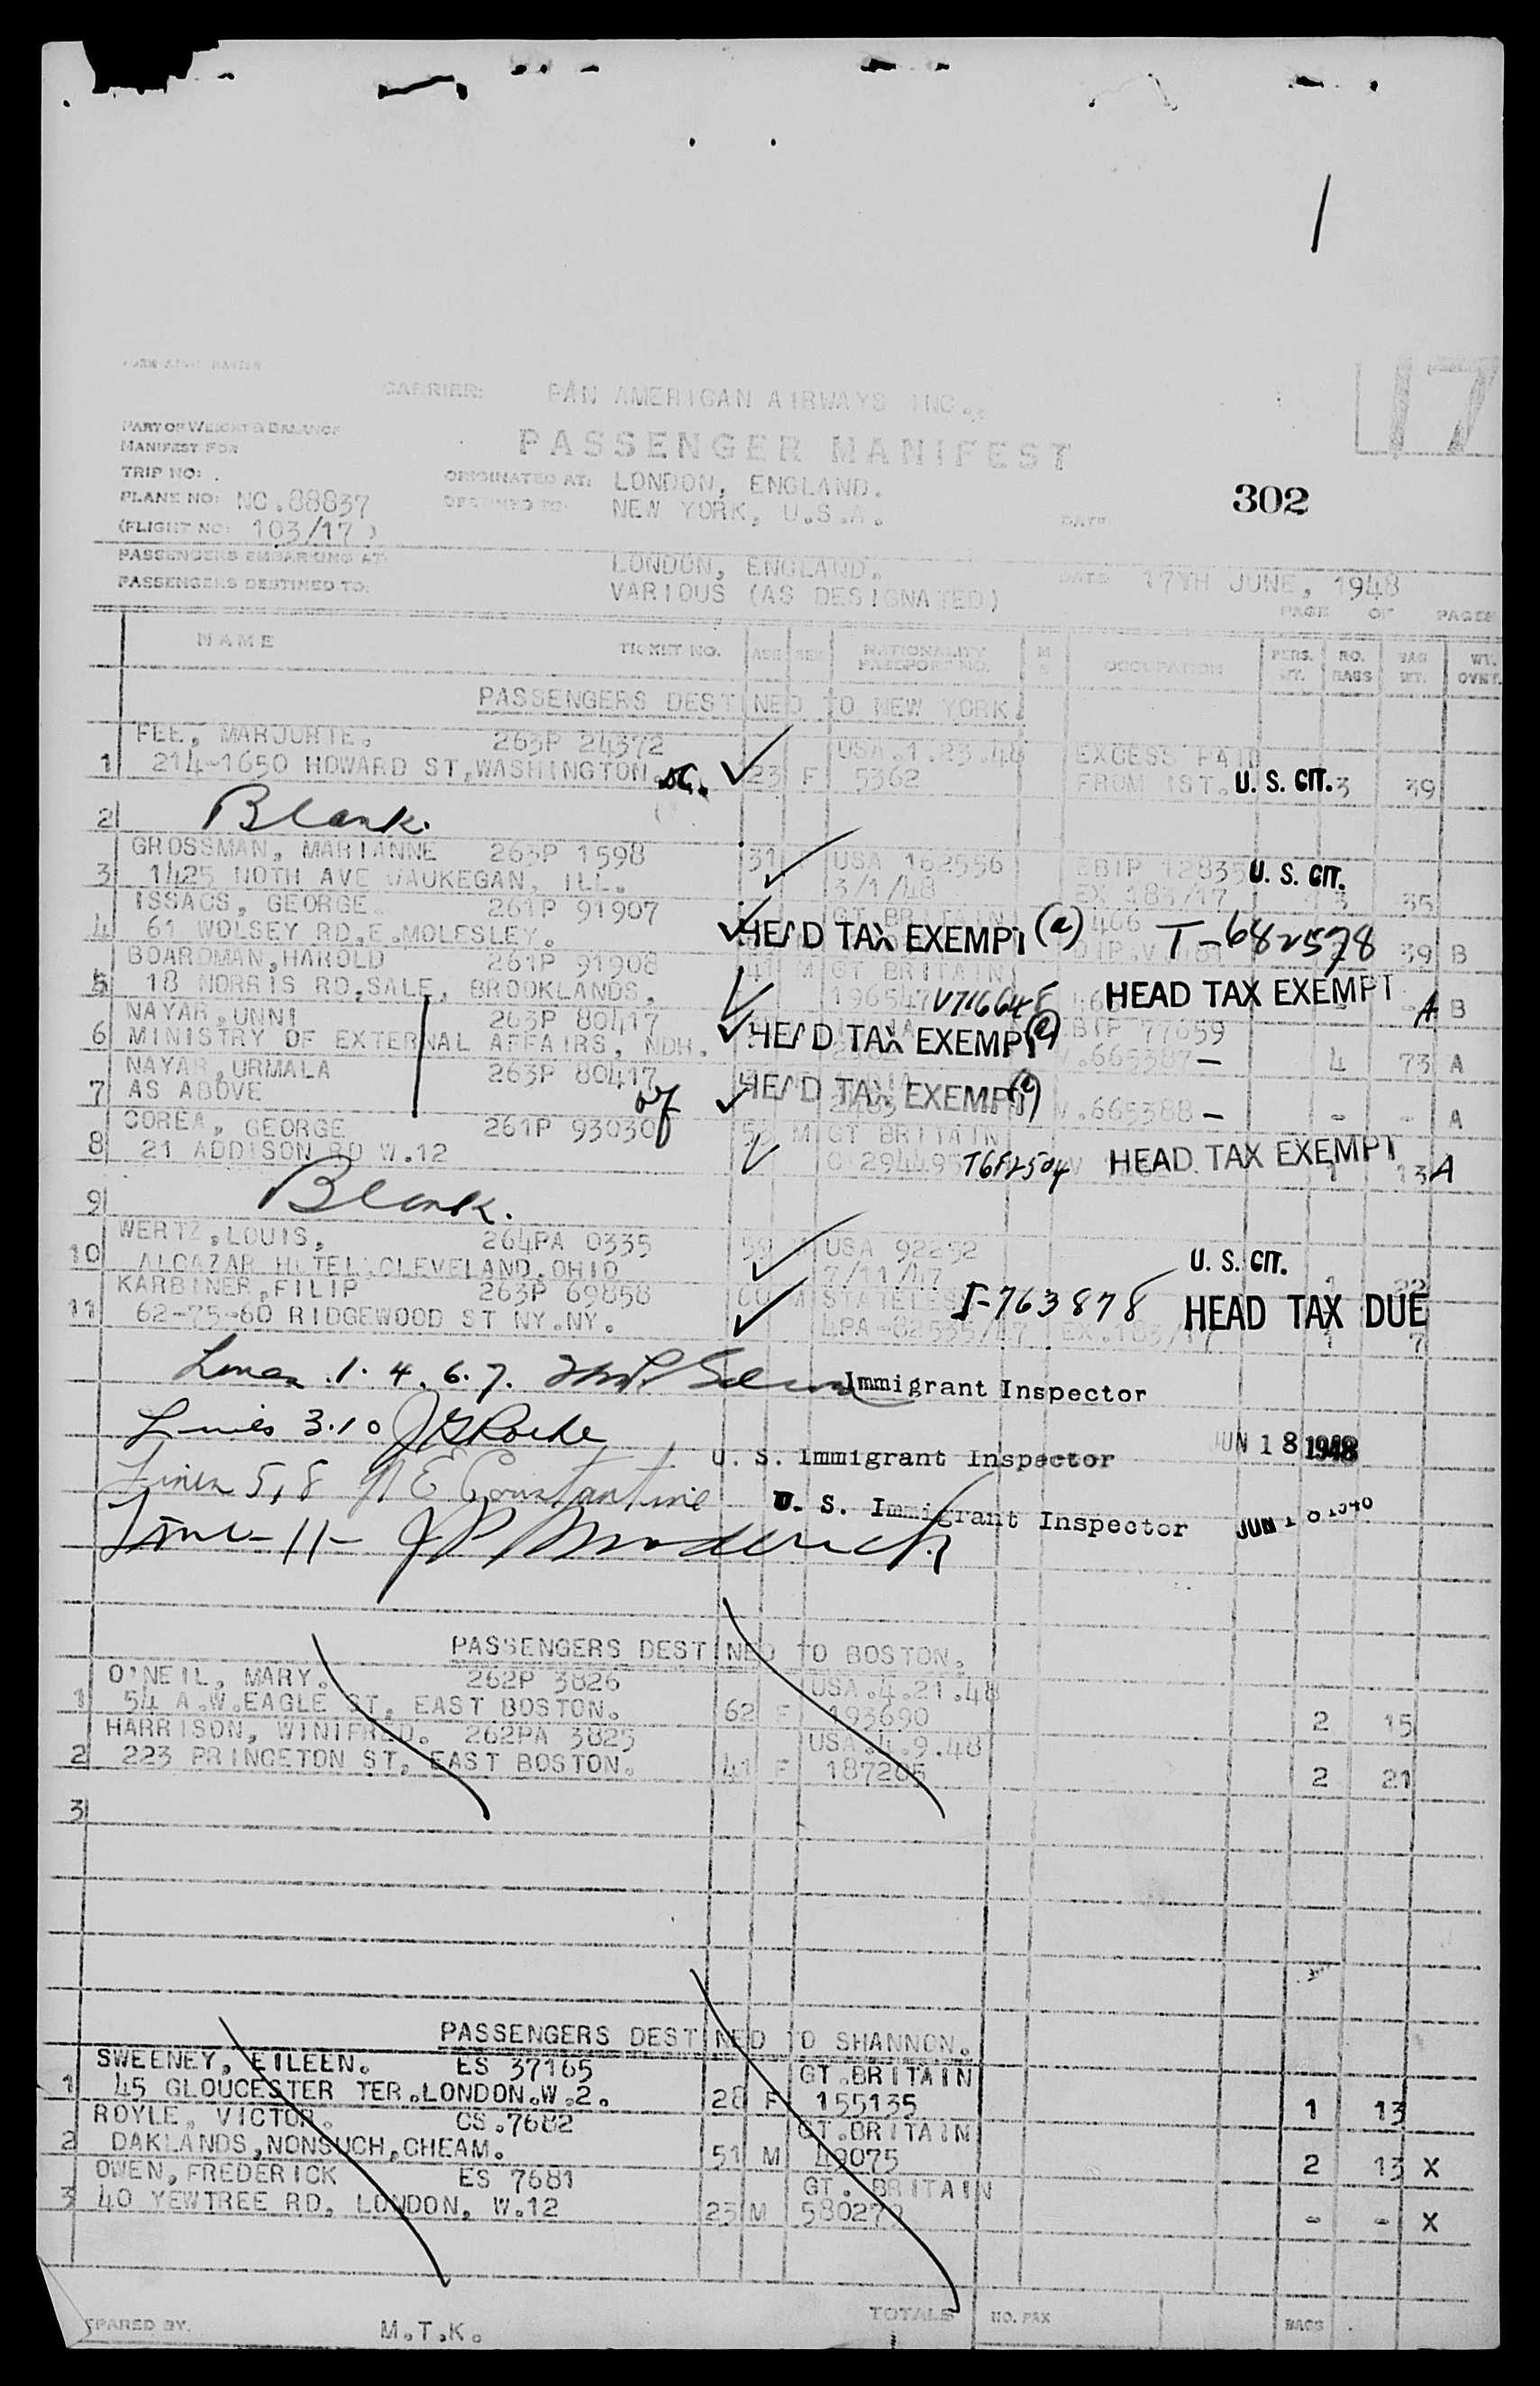 CARRIER: PAN AMERICAN AIRWAYS INC.,
17
PART OF WEIGHT & BALANCE
MANIFEST FOR
PASSENGER MANIFEST
TRIP NO: .
ORIGINATED AT: LONDON, ENGLAND.
302
PLANE NO: NC.88837
DESTINED TO: NEW YORK, U.S.A.
DATE
(FLIGHT NO: 103/17 )
PASSENGERS EMBARKING AT: LONDON, ENGLAND.
DATE 17TH JUNE, 1948
PASSENGERS DESTINED TO: VARIOUS (AS DESIGNATED)
PAGE OF PAGES
NAME TICKET NO. AGE SEX NATIONALITY PASSPORT NO. M S OCCUPATION PERS. WT. NO. BAGS BAG WT. WT. OVNT.
PASSENGERS DESTINED TO NEW YORK.
FEE, MARJORIE. 263P 24372 USA.1.23.48 EXCESS PAID
1 214-1650 HOWARD ST,WASHINGTON. DC. 23 F 5362 FROM IST. U. S. CIT. 3 39
2 Blank.
GROSSMAN, MARIANNE 263P 1598 31 USA 162556 EBIP 12835 U. S. CIT.
3 1425 NOTH AVE WAUKEGAN, ILL. 3/1/48 EX 183/17 3 35
ISSACS, GEORGE. 261P 91907 GT BRITAIN 466
4 61 WOLSEY RD.E.MOLESLEY. HEAD TAX EXEMPT (a) T-682578 39 B
BOARDMAN,HAROLD 261P 91908 41 M GT BRITAIN
5 18 NORRIS RD,SALE, BROOKLANDS. 196547 V716648 HEAD TAX EXEMPT A B
NAYAR,UNNI 263P 80417 EBIP 77659
6 MINISTRY OF EXTERNAL AFFAIRS, NDH. HEAD TAX EXEMPT (a) V.665387 - 4 73 A
NAYAR,URMALA 263P 80417
7 AS ABOVE HEAD TAX EXEMPT V.665388 - - - A
COREA, GEORGE 261P 93030 M GT BRITAIN
8 21 ADDISON RD W.12 HEAD TAX EXEMPT 1 13 A
9 Blank.
WERTZ,LOUIS, 264PA 0335 59 USA 92252 U. S. CIT.
10 ALCAZAR HOTEL,CLEVELAND,OHIO 7/11/47 1 22
KARBINER,FILIP 263P 69858 60 M STATELESS I-763878 HEAD TAX DUE
11 62-75-60 RIDGEWOOD ST NY.NY. 4PA-82535/47 EX.183/17 1 7
Lines .1. 4. 6. 7. Immigrant Inspector
Lines 3.10 U. S. Immigrant Inspector JUN 18 1948
Lines 5,8 N E Constantine U. S. Immigrant Inspector JUN 18 1948
Line - 11 -
PASSENGERS DESTINED TO BOSTON.
O'NEIL, MARY. 262P 3826 USA.4.21.48
1 54 A.W.EAGLE ST, EAST BOSTON. 62 F 193690 2 15
HARRISON, WINIFRED. 262PA 3825 USA.4.9.48
2 223 PRINCETON ST, EAST BOSTON. 41 F 187205 2 21
3
PASSENGERS DESTINED TO SHANNON.
SWEENEY, EILEEN. ES 37165 GT.BRITAIN
1 45 GLOUCESTER TER.LONDON.W.2. 28 F 155135 1 13
ROYLE, VICTOR. CS.7682 GT.BRITAIN
2 OAKLANDS,NONSUCH,CHEAM. 51 M 49075 2 13 X
OWEN,FREDERICK ES 7681 GT. BRITAIN
3 40 YEWTREE RD, LONDON, W.12 23 M - - X
TOTALS NO. PAX BAGS
PREPARED BY. M.T.K.